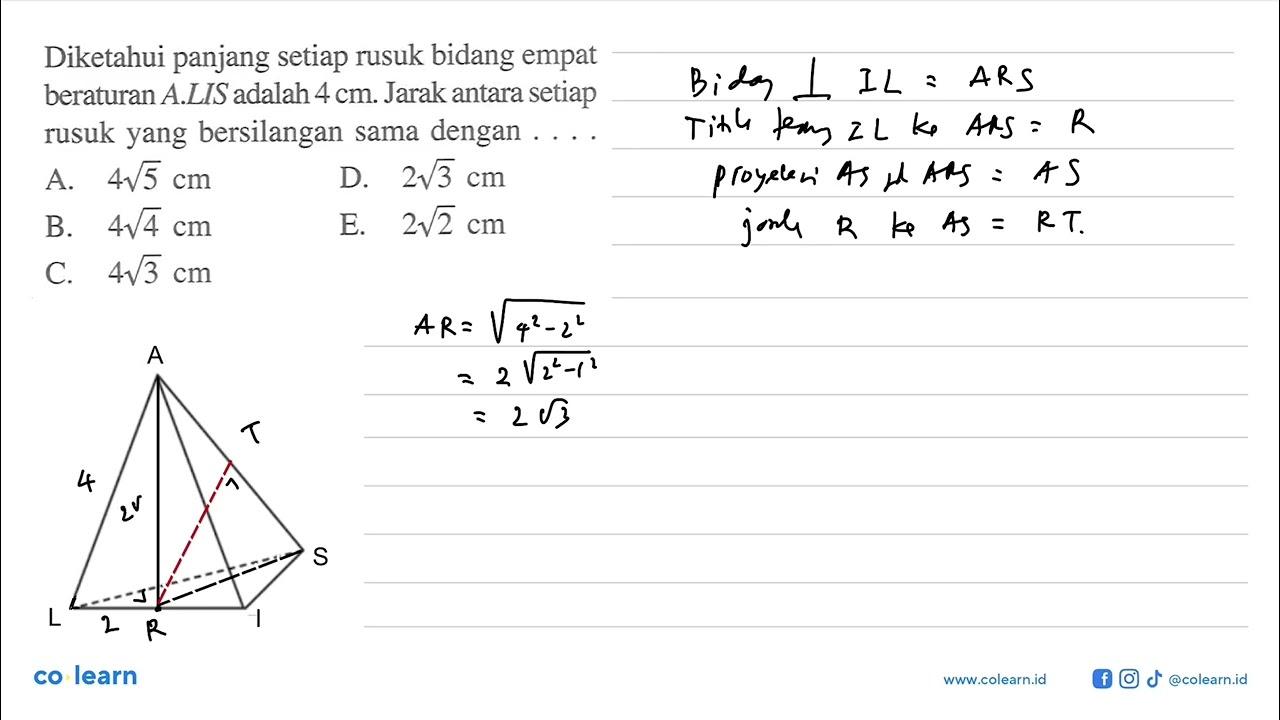 Diketahui panjang setiap rusuk bidang empat
beraturan A.LIS adalah 4 cm. Jarak antara setiap
rusuk yang bersilangan sama dengan . . . .
A. 4√5 cm D. 2√3 cm
B. 4√4 cm E. 2√2 cm
C. 4√3 cm
Bidang ⊥ IL = ARS
Titik IL ke ARS = R
proyeksi AS ARS = AS
jarak R ke AS = RT.
AR = √4²-2²
= 2 √2²-1²
= 2√3
A
T
4
2√
S
L
2
R
I
co learn
www.colearn.id
@colearn.id